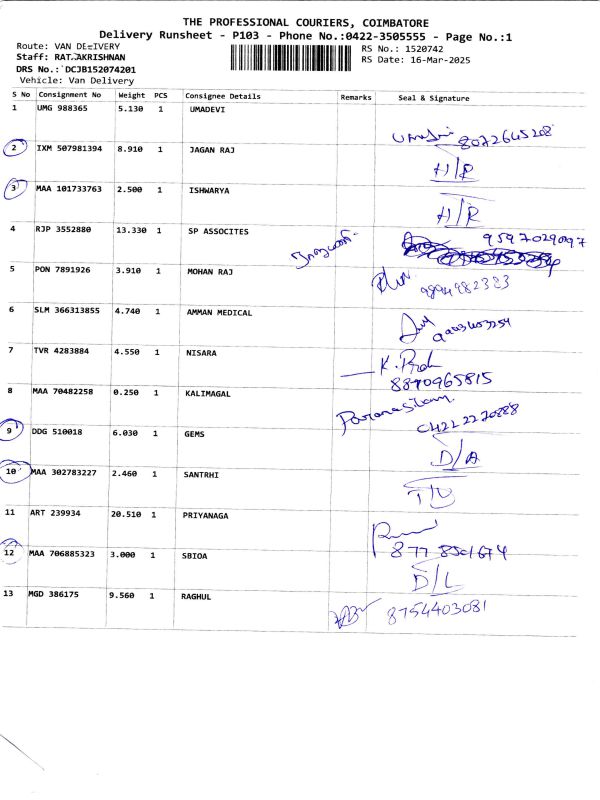 THE PROFESSIONAL COURIERS, COIMBATORE
Delivery Runsheet - P103 - Phone No.:0422-3505555 - Page No.:1
Route: VAN DELIVERY RS No.: 1520742
Staff: RATNAKRISHNAN RS Date: 16-Mar-2025
DRS No.: DCJB152074201
Vehicle: Van Delivery
S No Consignment No Weight PCS Consignee Details Remarks Seal & Signature
1 UMG 988365 5.130 1 UMADEVI
8072645208
2 IXM 507981394 8.910 1 JAGAN RAJ H/R
3 MAA 101733763 2.500 1 ISHWARYA H/R
4 RJP 3552880 13.330 1 SP ASSOCITES 9597029097
5 PON 7891926 3.910 1 MOHAN RAJ
9894982323
6 SLM 366313855 4.740 1 AMMAN MEDICAL
7 TVR 4283884 4.550 1 NISARA
8870965815
8 MAA 70482258 0.250 1 KALIMAGAL
9 DDG 510018 6.030 1 GEMS D/A
10 MAA 302783227 2.460 1 SANTRHI
11 ART 239934 20.510 1 PRIYANAGA
12 MAA 706885323 3.000 1 SBIOA D/L
13 MGD 386175 9.560 1 RAGHUL 8754403081